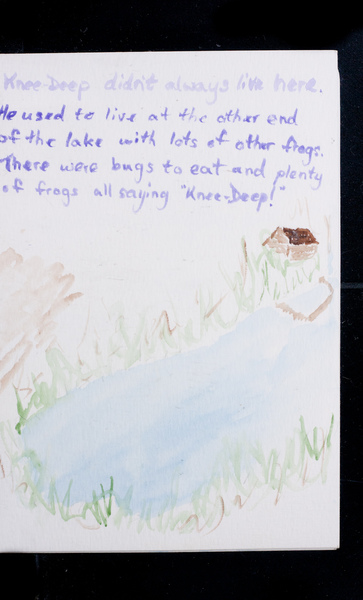 Knee-Deep didn't always live here.
He used to live at the other end
of the lake with lots of other frogs.
There were bugs to eat and plenty
of frogs all saying "Knee-Deep!"